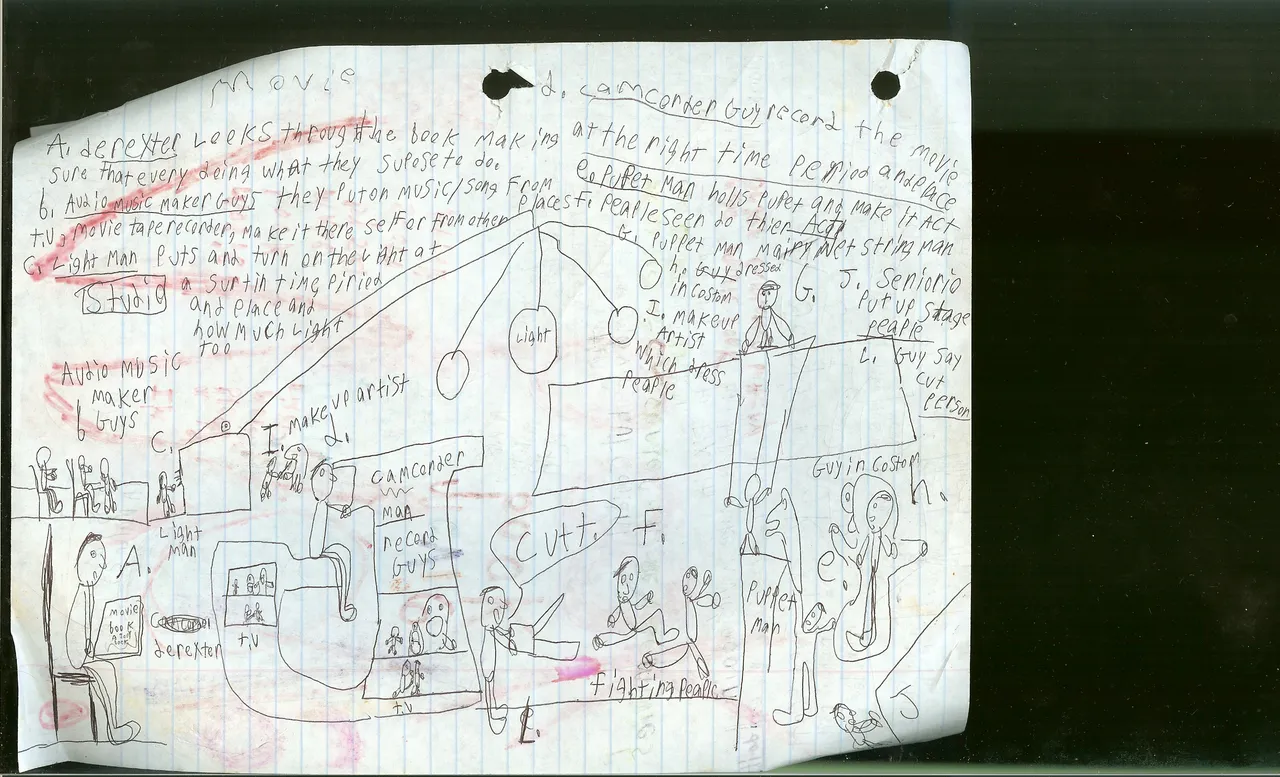 Movie
A. derexter Leeks through the book making
sure that every doing what they supose to do.
b. Audio music maker Guys they put on music/song From
t.v, movie tape recorder, make it there self or from other places
C. Light man puts and turn on the Light at
a surtin timg piriod
and place and
how much Light
too
Studio
d. camcorder Guy record the movie
at the right time period and place
e. pupet man holls pupet and make it Act
F. people seen do thier Act
G. puppet man mairy net string man
h. Guy dressed
in costom
I. makeup
Artist
which dress
people
J. Seniorio
put up stage
people
L. Guy say
cut
person
G.
Light
Audio music
maker
Guys
b
C.
I. makeup artist
d.
camcorder
man
record
GUYS
Light
man
A.
movie
book
derexter
t.v
t.v
Cutt.
F.
Fighting people
Guy in Costom
h.
e.
Puppet
man
J